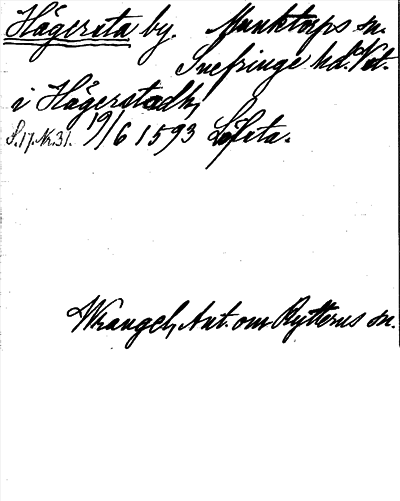 Hågersta by. Munktorps sn.
Snefringe hd. Vstm.
i Hågerstadh,
S.17. Nr.31. 19/6 1593 Löfsta.
Wrangel, Ant. om Rytterns sn.